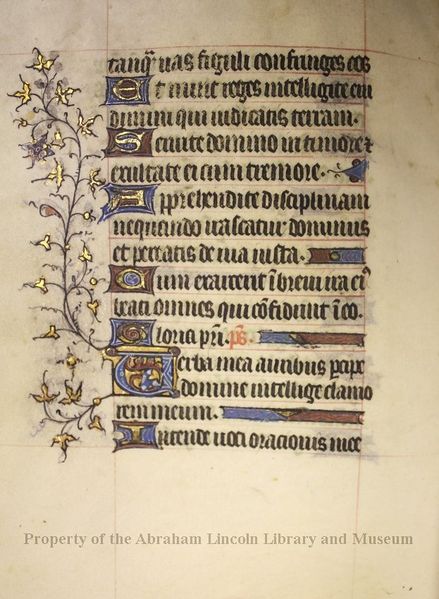 tanq̄ uas figuli confringes eos
Et nunc reges intelligite eru
dimini qui iudicatis terram.
Seruite domino in timore et
exultate ei cum tremore.
Apprehendite disciplinam
nequando irascatur dominus
et pereatis de uia iusta.
Cum exarserit ī breui ira eiꝰ
beati omnes qui cōfidunt ī eo.
Gloria pr̄i. ps̄.
Uerba mea auribus percipe
domine intellige clamo
rem meum.
Intende uoci oracionis mee
Property of the Abraham Lincoln Library and Museum